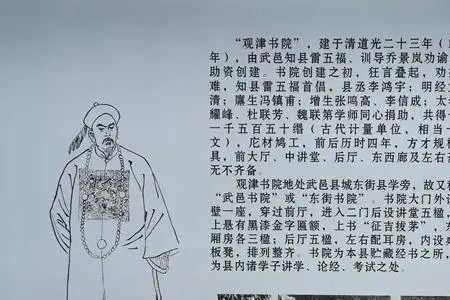 “观津书院”，建于清道光二十三年（
年，由武邑知县雷五福、训导乔景岚劝谕
助资创建。书院创建之初，狂言叠起，劝
难，知县雷五福首倡，县丞李鸿宇；明经
清；廉生冯镇甫；增生张鸣高、李信成；太
耀峰、杜联芳、魏联第学师同心捐助，共得
一千五百五十缗（古代计量单位，相当一
文），庀材鸠工，前后历时四年，方才规模
具，前大厅、中讲堂、后厅、东西廊及左右
无不齐备。
观津书院地处武邑县城东街县学旁，故又称
“武邑书院”或“东街书院”。书院大门外设
壁一座，穿过前厅，进入二门后设讲堂五楹，
上悬有黑漆金字匾额，上书“征吉拔茅”，东
厢房各三楹；后厅五楹，左右配耳房，内设桌
板凳，排列整齐。书院为本县贮藏经书之所，
为县内诸学子讲学、论经、考试之处。